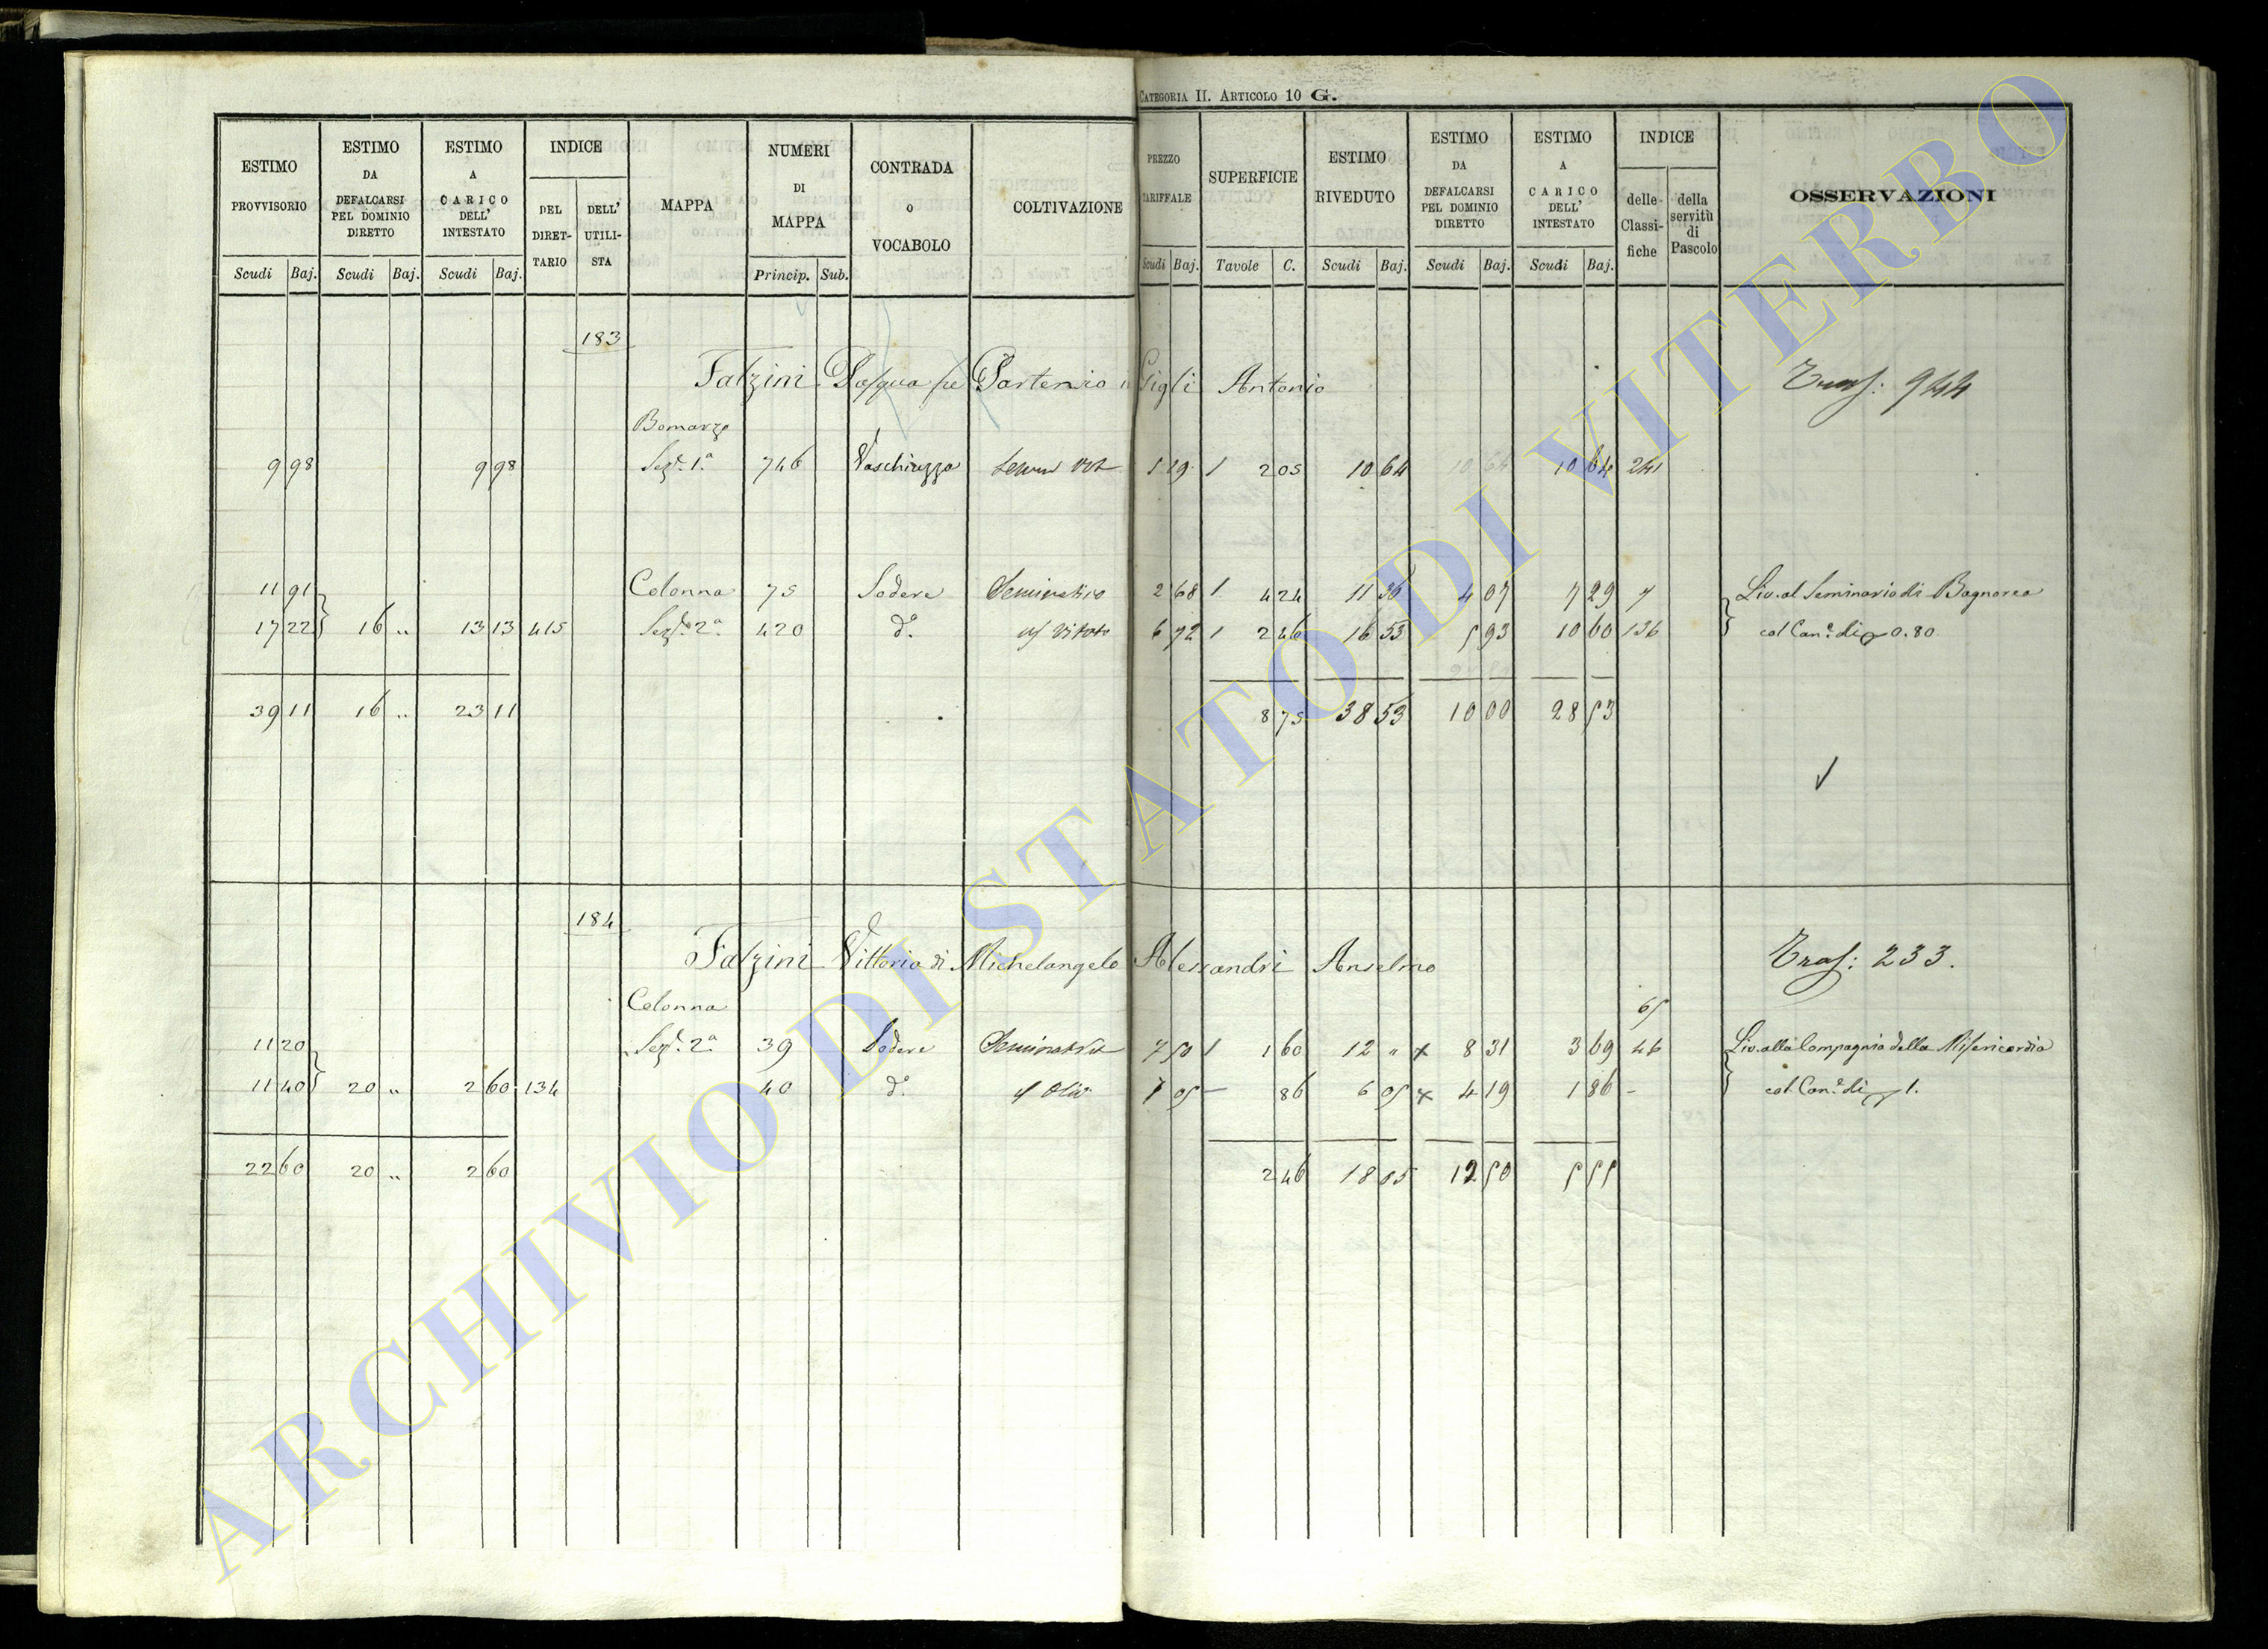 CATEGORIA II. ARTICOLO 10 G.
ESTIMO PROVVISORIO Scudi Baj.
ESTIMO DA DEFALCARSI PEL DOMINIO DIRETTO Scudi Baj.
ESTIMO A CARICO DELL' INTESTATO Scudi Baj.
INDICE DEL DIRET- TARIO DELL' UTILI- STA
MAPPA
NUMERI DI MAPPA Princip. Sub.
CONTRADA O VOCABOLO
COLTIVAZIONE
PREZZO TARIFFALE Scudi Baj.
SUPERFICIE Tavole C.
ESTIMO RIVEDUTO Scudi Baj.
ESTIMO DA DEFALCARSI PEL DOMINIO DIRETTO Scudi Baj.
ESTIMO A CARICO DELL' INTESTATO Scudi Baj.
INDICE delle Classi- fiche della servitù di Pascolo
OSSERVAZIONI
183
Falzini Pasqua Partenzio in Gigli Antonio Trasf: 944
Bomarzo
9 98 9 98 Sezе 1ª 746 Vaschiazza 1 29 1 2 05 10 64 10 64 10 64 241
11 91 Colonna 75 Sodere Seminativo 2 68 1 4 24 11 36 4 07 7 29 7 Liv. al Seminario di Bagnorea
17 22 16 " 13 13 415 Sezе 2ª 420 dº vitato 6 72 1 2 46 16 53 5 93 10 60 136 col Canе di 0.80
39 11 16 " 23 11 8 75 38 53 10 00 28 53
184
Falzini Vittoria di Michelangelo Alessandri Anselmo Trasf: 233.
Colonna 65
11 20 Sezе 2ª 39 Sodere Seminativo 7 50 1 1 60 12 " x 8 31 3 69 46 Liv. alla Compagnia della Misericordia
11 40 20 " 2 60 134 40 dº Oliv. 7 05 - 86 6 05 x 4 19 1 86 - col Canе di 1.
22 60 20 " 2 60 2 46 18 05 12 50 5 55
ARCHIVIO DI STATO DI VITERBO